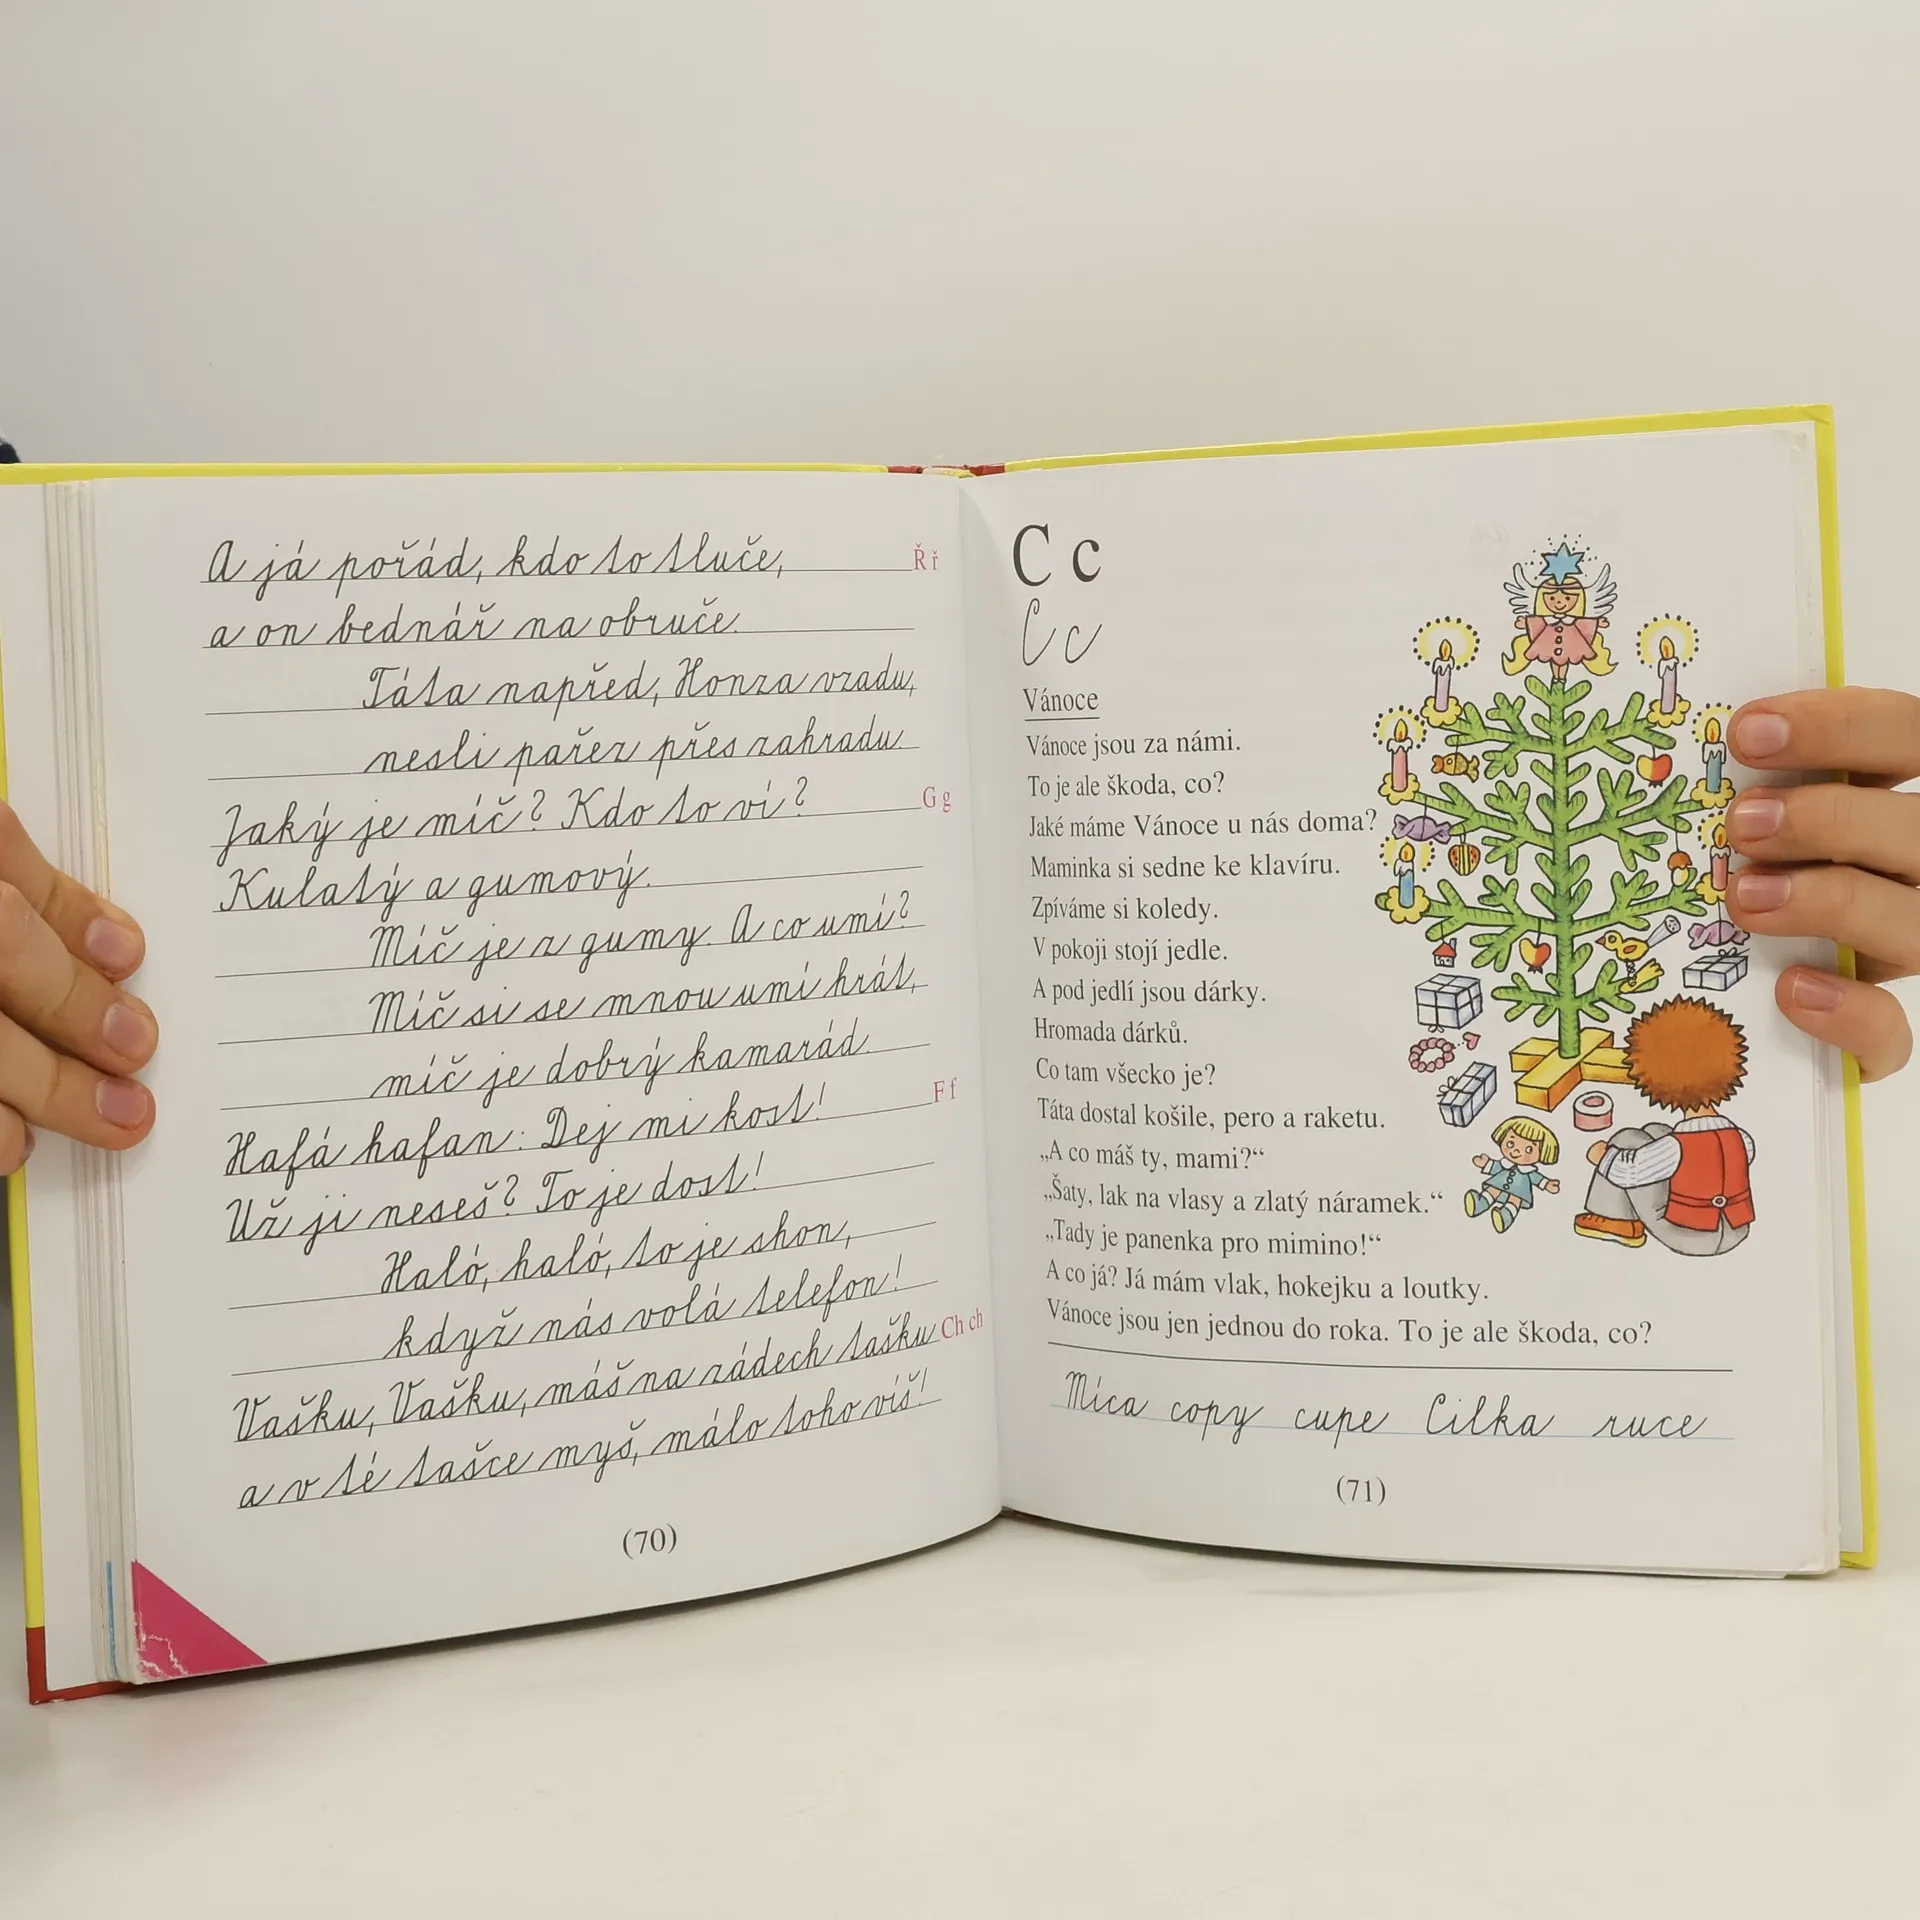 A já pořád, kdo to tluče,
Ř ř
a on bednář na obruče.
Táta napřed, Honza vzadu,
nesli pařez přes zahradu.
Jaký je míč? Kdo to ví?
G g
Kulatý a gumový.
Míč je z gumy. A co umí?
Míč si se mnou umí hrát,
míč je dobrý kamarád.
F f
Hafá hafan: Dej mi kost!
Už ji neseš? To je dost!
Haló, haló, to je shon,
když nás volá telefon!
Vašku, Vašku, máš na zádech tašku
Ch ch
a v té tašce myš, málo toho víš!
(70)
C c
C c
Vánoce
Vánoce jsou za námi.
To je ale škoda, co?
Jaké máme Vánoce u nás doma?
Maminka si sedne ke klavíru.
Zpíváme si koledy.
V pokoji stojí jedle.
A pod jedlí jsou dárky.
Hromada dárků.
Co tam všecko je?
Táta dostal košile, pero a raketu.
„A co máš ty, mami?“
„Šaty, lak na vlasy a zlatý náramek.“
„Tady je panenka pro mimino!“
A co já? Já mám vlak, hokejku a loutky.
Vánoce jsou jen jednou do roka. To je ale škoda, co?
Míca copy cupe Cilka ruce
(71)